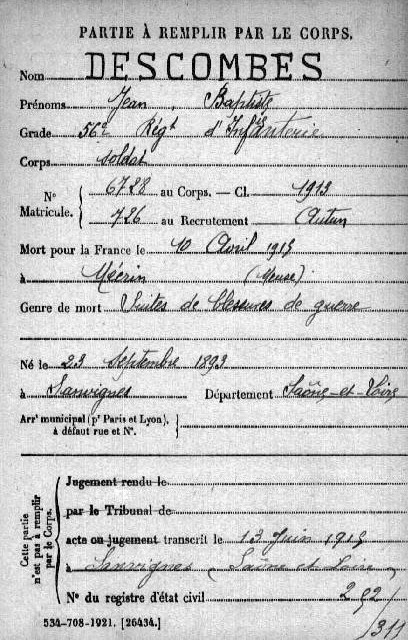 PARTIE À REMPLIR PAR LE CORPS.
Nom DESCOMBES
Prénoms Jean, Baptiste
Grade 56e Régt d'Infanterie
Corps soldat
N° Matricule. { 6728 au Corps. — Cl. 1913
726 au Recrutement Autun
Mort pour la France le 10 Avril 1915
à Mécrin (Meuse)
Genre de mort Suites de blessures de guerre
Né le 23 Septembre 1893
à Sanvignes Département Saône-et-Loire
Arrt municipal (pr Paris et Lyon),
à défaut rue et N°.
Cette partie n'est pas à remplir par le Corps.
Jugement rendu le
par le Tribunal de
acte ou jugement transcrit le 13 Juin 1915
à Sanvignes (Saône et Loire)
N° du registre d'état civil
534-708-1921. [26434.]